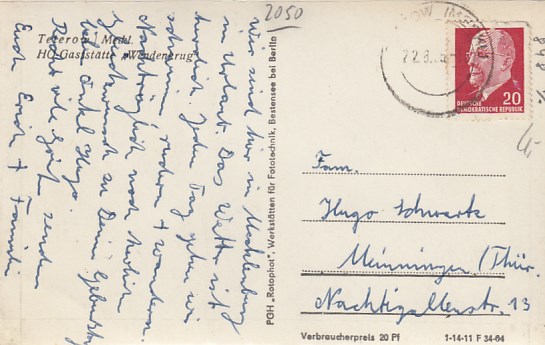 2050
Teterow / Meckl.
HO-Gaststätte „Wendenkrug"
Wir sind hier in Mecklenburg
in Urlaub. Das Wetter ist
herrlich. Jeden Tag gehen wir
schwimmen, rudern + wandern.
Nachträglich noch herzlichen
Glückwunsch zu Deinem Geburtstag
lb. Onkel Hugo.
Recht viele Grüße senden
Erich + Familie
PGH „Rotophot", Werkstätten für Fototechnik, Bestensee bei Berlin
22.8.
DEUTSCHE
DEMOKRATISCHE REPUBLIK
20
Fam.
Hugo Schwartz
Meinningen/Thür.
Nachtigallenstr. 13
Verbraucherpreis 20 Pf 1-14-11 F 34-64